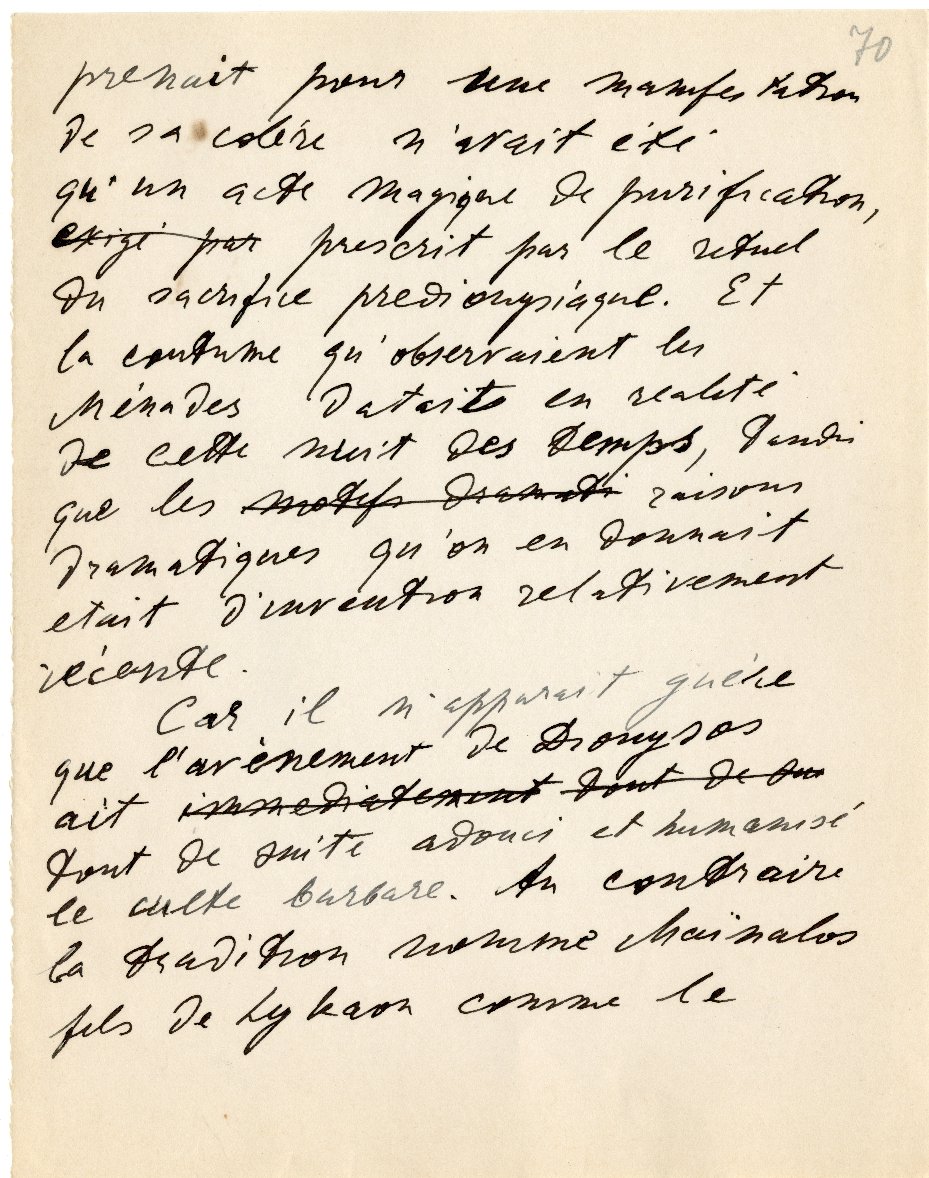 70
prenait pour une manifestation
de sa colère n'avait été
qu'un acte magique de purification,
exigé par prescrit par le rituel
du sacrifice predionysiaque. Et
la coutume qu'observaient les
Ménades datait en realité
de cette nuit des temps, tandis
que les motifs dramati raisons
dramatiques qu'on en donnait
etait d'invention relativement
récente.
Car il n'apparait guère
que l'avènement de Dionysos
ait immediatement tout de su
tout de suite adouci et humanisé
le culte barbare. Au contraire
la tradition nomme Maïnalos
fils de Lykaon comme le